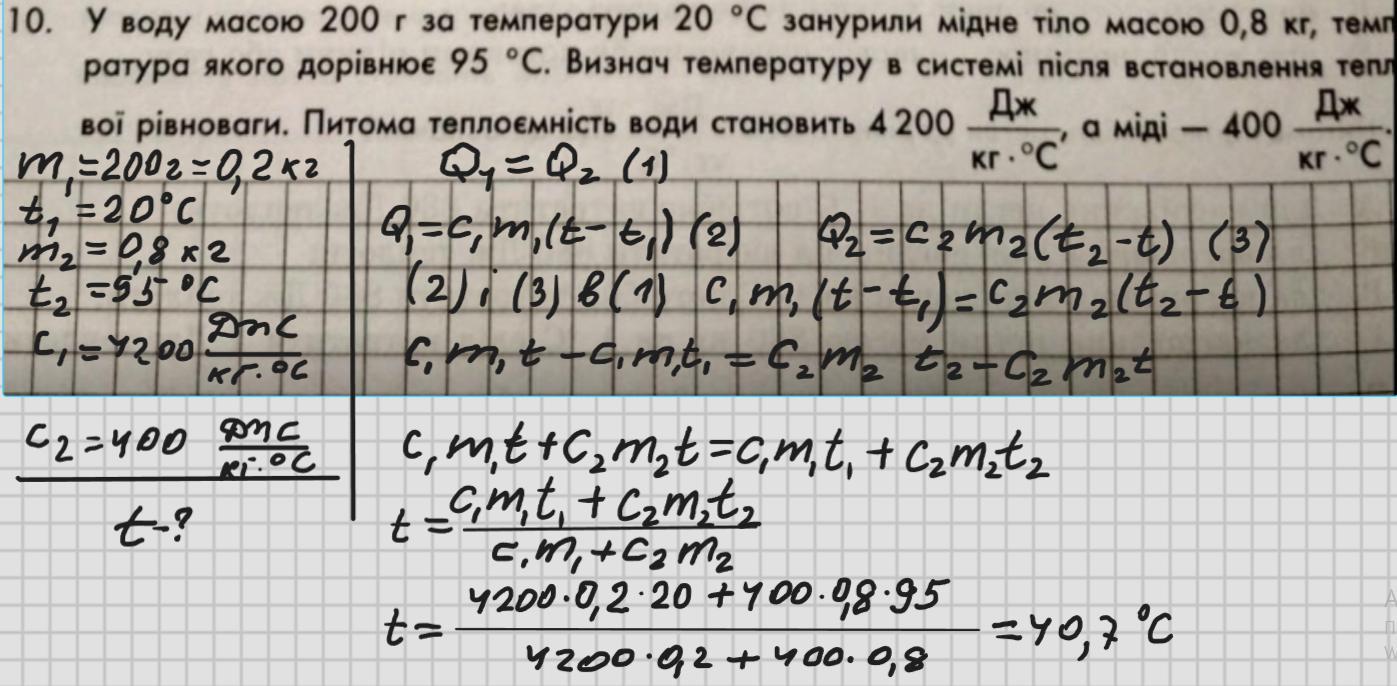 10. У воду масою 200 г за температури 20 °С занурили мідне тіло масою 0,8 кг, темп
ратура якого дорівнює 95 °С. Визнач температуру в системі після встановлення тепл
вої рівноваги. Питома теплоємність води становить 4 200 Дж/кг·°С, а міді — 400 Дж/кг·°С.
m₁=200г=0,2кг
t₁=20°C
m₂=0,8кг
t₂=95°C
c₁=4200 Дж/кг·°C
c₂=400 Дж/кг·°C
t-?
Q₁=Q₂ (1)
Q₁=c₁m₁(t-t₁) (2) Q₂=c₂m₂(t₂-t) (3)
(2) і (3) в (1) c₁m₁(t-t₁)=c₂m₂(t₂-t)
c₁m₁t-c₁m₁t₁=c₂m₂t₂-c₂m₂t
c₁m₁t+c₂m₂t=c₁m₁t₁+c₂m₂t₂
t=(c₁m₁t₁+c₂m₂t₂)/(c₁m₁+c₂m₂)
t=(4200·0,2·20+400·0,8·95)/(4200·0,2+400·0,8)=40,7°C